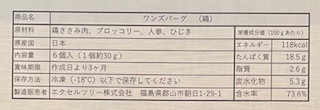 商品名 ワンズバーグ (鶏)
原材料 鶏ささみ肉、ブロッコリー、人参、ひじき
原産国 日本
内容量 6個入 (1個約30g)
賞味期限 作成日より3ヶ月
保存方法 冷凍 (-18℃) 以下で保存してください
製造販売者 エクセルツリー株式会社 福島県郡山市朝日1-29-1
栄養成分値 (100gあたり)
エネルギー 118kcal
たんぱく質 18.5g
脂質 2.6g
炭水化物 5.3g
含水率 73.6%